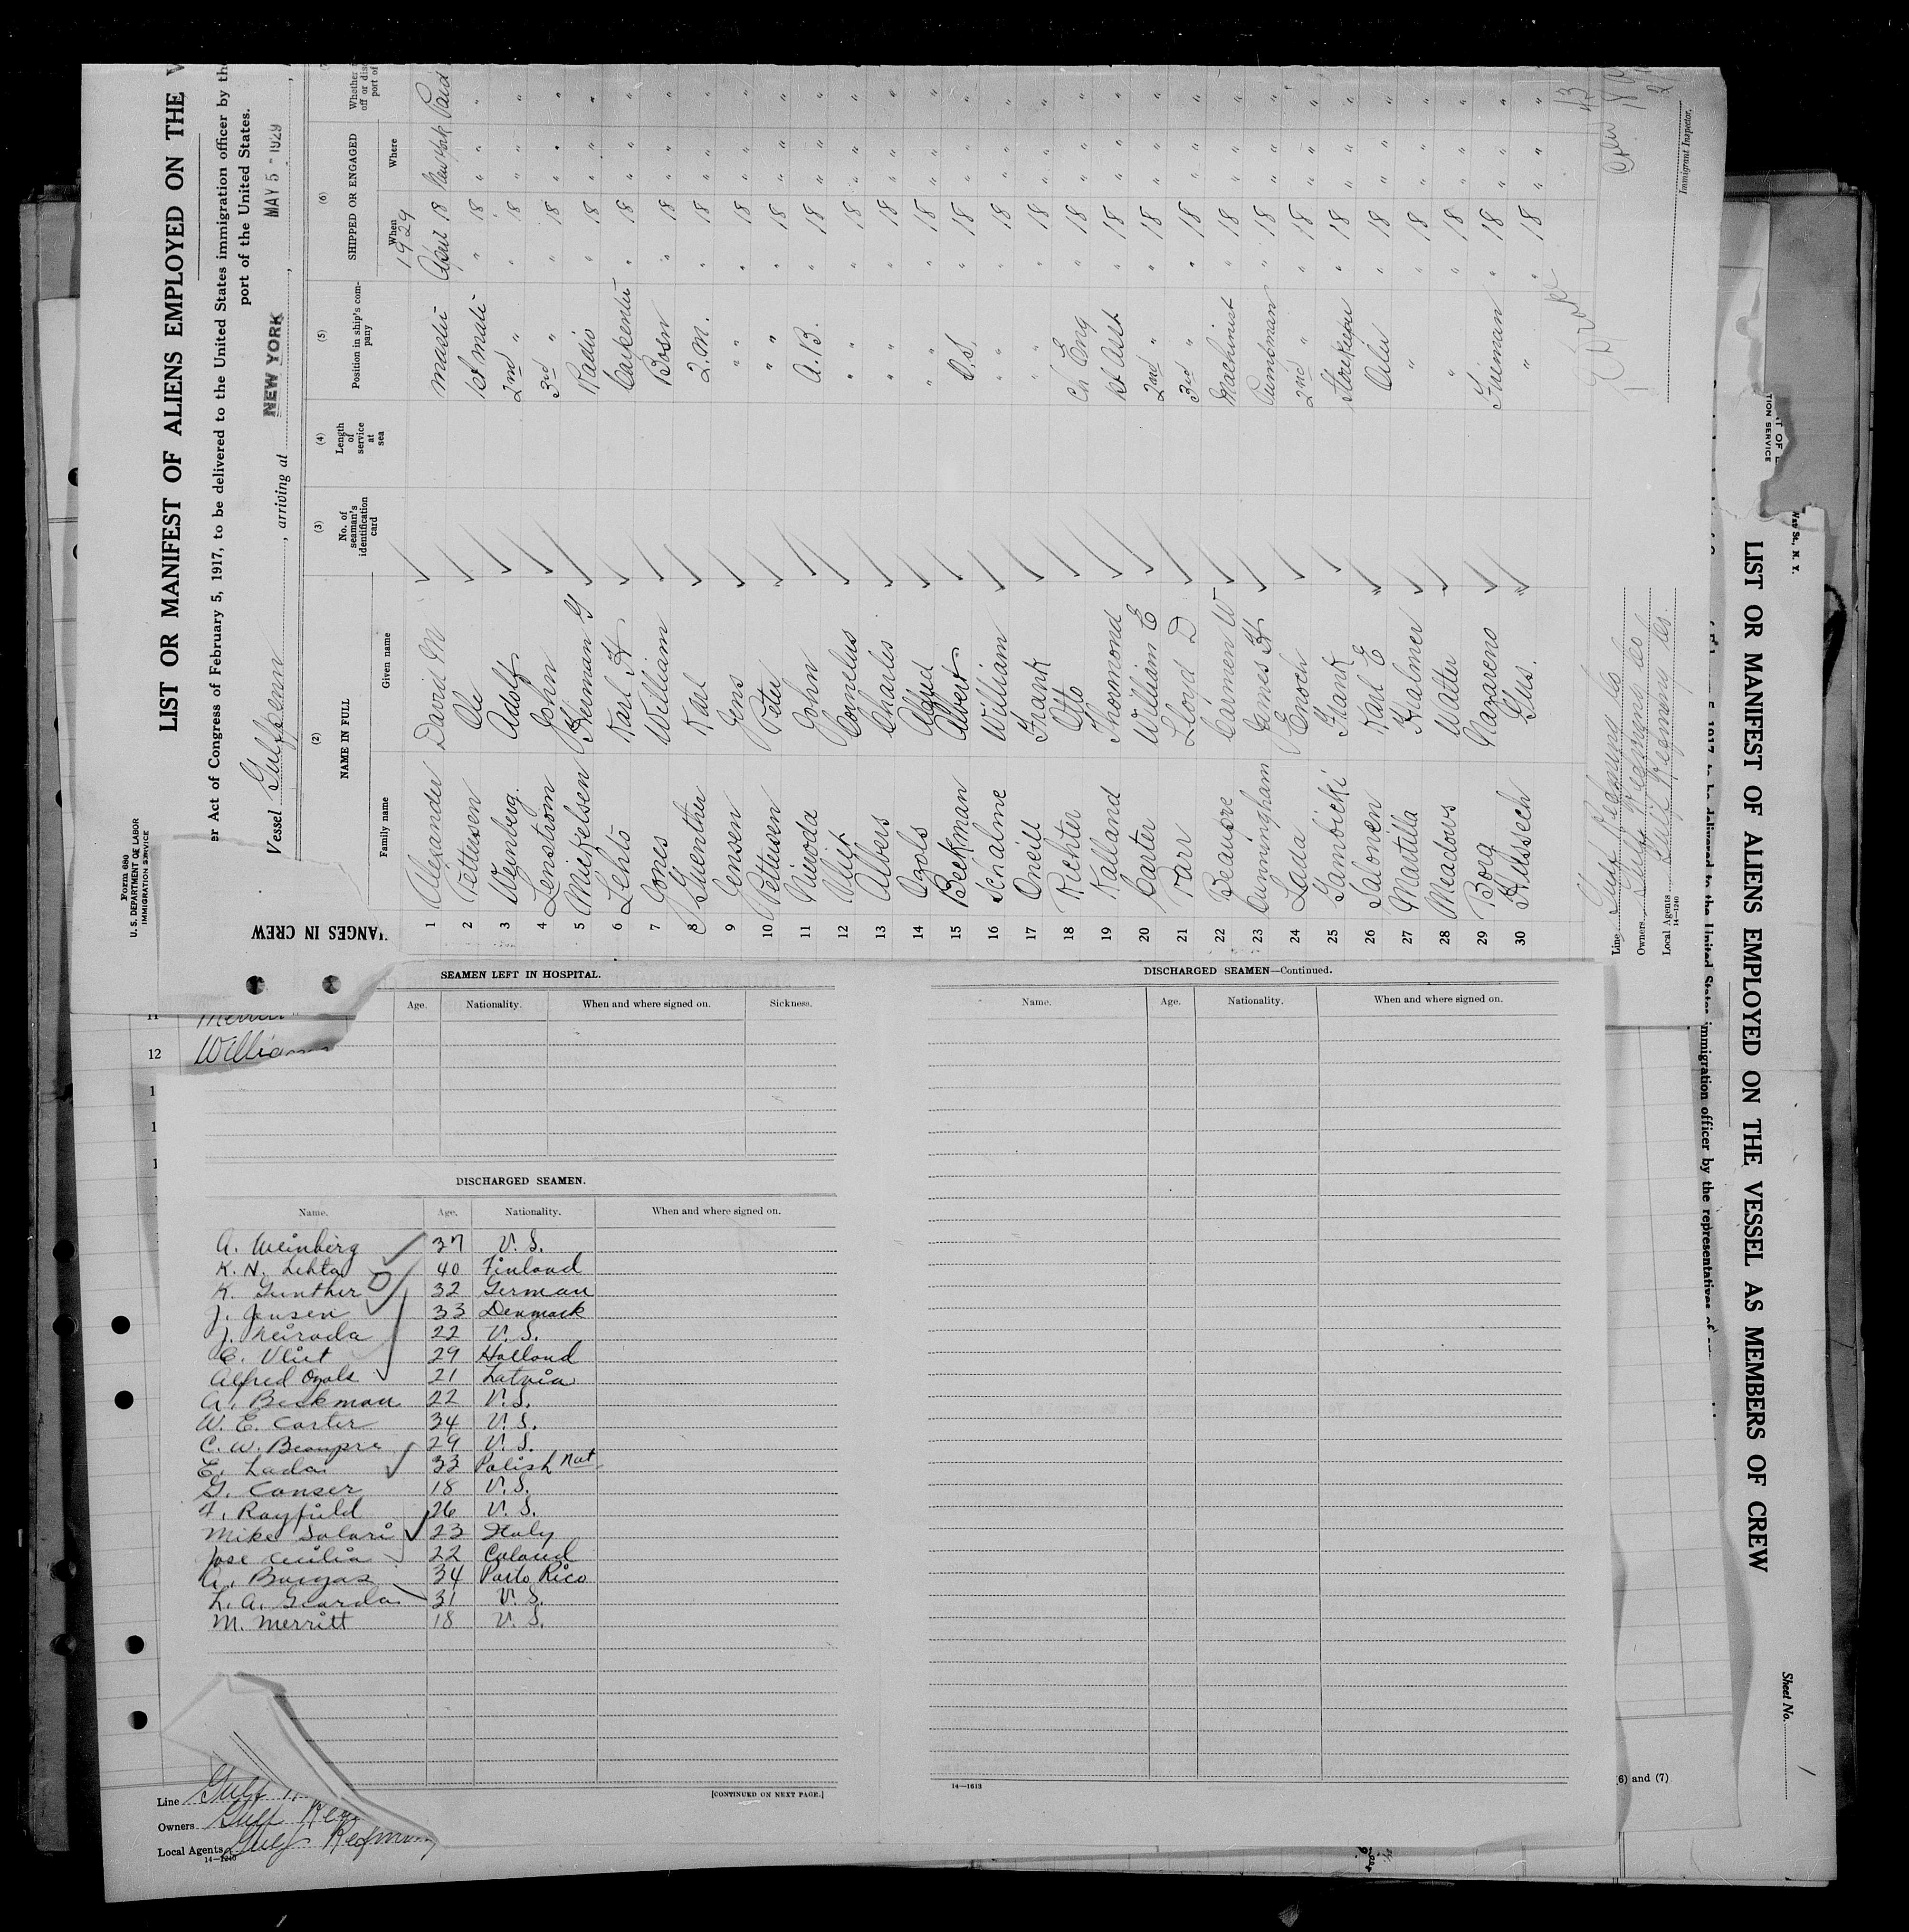 Form 680
U. S. DEPARTMENT OF LABOR
IMMIGRATION SERVICE
LIST OR MANIFEST OF ALIENS EMPLOYED ON THE
er Act of Congress of February 5, 1917, to be delivered to the United States immigration officer by the
port of the United States.
Vessel , arriving at NEW YORK, MAY 5 - 1929,
(2) (3) (4) (5) (6)
NAME IN FULL
Family name Given name
No. of seaman's identification card
Length of service at sea
Position in ship's company
SHIPPED OR ENGAGED
When Where
1929
1 Alexander David M Master April 18 New York Paid
2 Pettersen Ole 1st mate " 18 " " "
3 Weinberg Adolf 2nd " " 18 " " "
4 Lenstrom John 3rd " " 18 " " "
5 Mickelsen Herman G Radio " 18 " " "
6 Lehto Karl H Carpenter " 18 " " "
7 Jones William Bosn " 18 " " "
8 Guenther Karl Q.M. " 18 " " "
9 Jensen Jens " " " 18 " " "
10 Pettersen Peter " " " 18 " " "
11 John A.B. " 18 " " "
12 Vliet Cornelus " " 18 " " "
13 Albers Charles " " 18 " " "
14 Ozols Alfred " " 18 " " "
15 Beckman Albert O.S. " 18 " " "
16 Schalme William " " 18 " " "
17 Oneill Frank " " 18 " " "
18 Richter Otto Ch Eng " 18 " " "
19 Kalland Thormond 1st Asst " 18 " " "
20 Carter William E 2nd " " 18 " " "
21 Farr Lloyd D 3rd " " 18 " " "
22 Beaupre Carmen W Machinist " 18 " " "
23 Cunningham James H Pumpman " 18 " " "
24 Lada Enoch 2nd " " 18 " " "
25 Gambicki Frank Storekeeper " 18 " " "
26 Salonen Karl E Oiler " 18 " " "
27 Martilla Hjalmer " " 18 " " "
28 Meadows Walter " " 18 " " "
29 Borg Nazareno Fireman " 18 " " "
30 Gus. " " 18 " " "
Line Gulf Refining Co
Owners Gulf Refining Co
Local Agents Gulf Refining Co.
14—1240
Immigrant Inspector.
ANGES IN CREW
12 William
SEAMEN LEFT IN HOSPITAL.
Age. Nationality. When and where signed on. Sickness.
DISCHARGED SEAMEN.
Name. Age. Nationality. When and where signed on.
A. Weinberg 37 U. S.
K. H. Lehto 40 Finland
K. Gunther 32 German
J. Jensen 33 Denmark
J. Neiroda 22 U. S.
C. Vliet 29 Holland
Alfred Ozols 21 Latvia
A. Beckman 22 U. S.
W. E. Carter 34 U. S.
C. W. Beaupre 29 U. S.
E. Lada 33 Polish Nat
G. Conser 18 U. S.
F. Rayfield 26 U. S.
Mike Solari 23 Italy
Jose Cecilia 22
A. Burgas 34 Porto Rico
L. A. 31 U. S.
M. Merritt 18 U. S.
[CONTINUED ON NEXT PAGE.]
DISCHARGED SEAMEN—Continued.
Name. Age. Nationality. When and where signed on.
14—1613
Line Gulf
Owners Gulf
Local Agents Gulf Refining
14—1240
LIST OR MANIFEST OF ALIENS EMPLOYED ON THE VESSEL AS MEMBERS OF CREW
immigration officer by the representatives of
Sheet No.
(6) and (7)